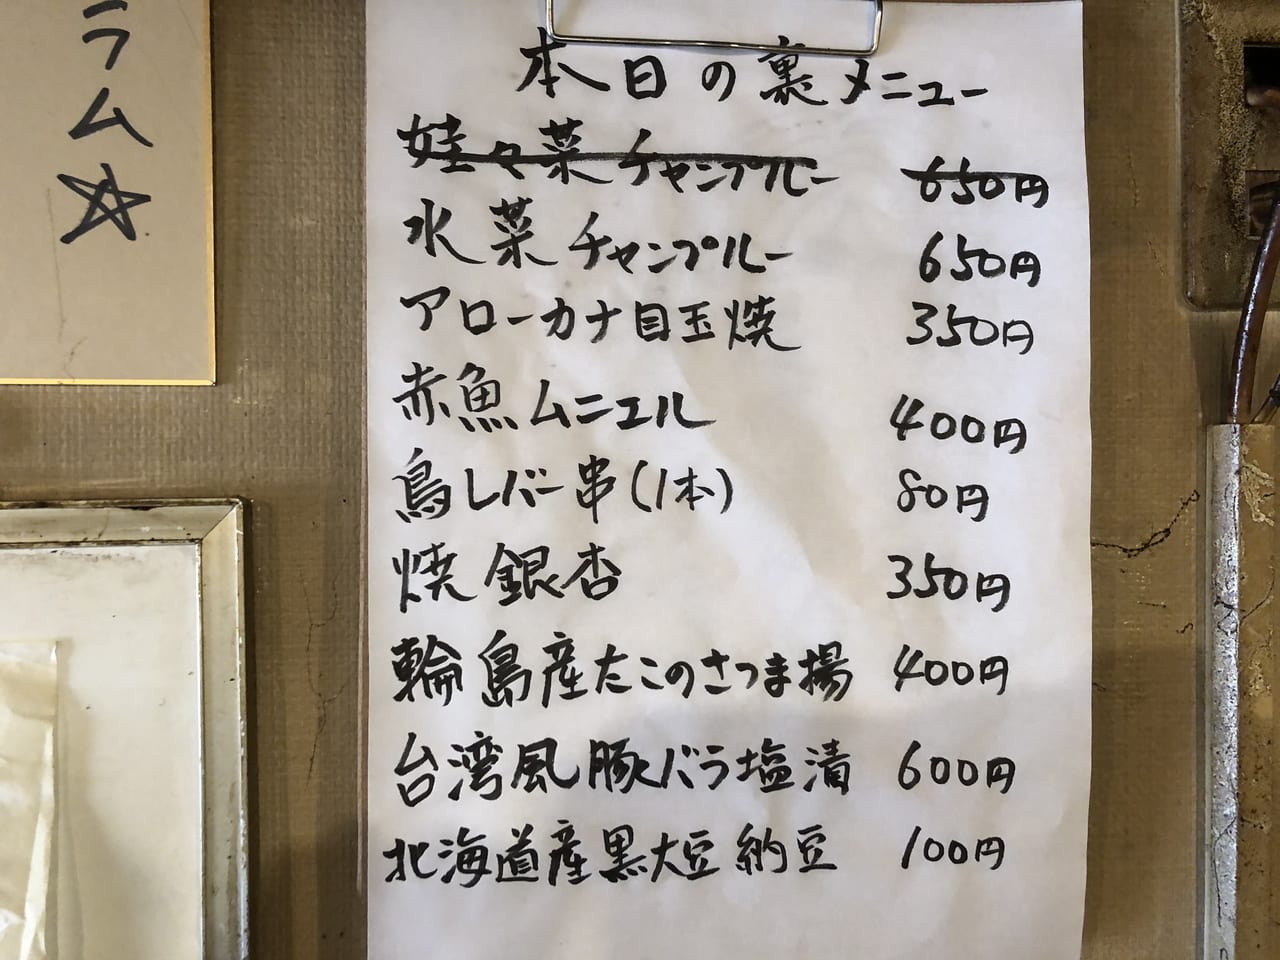 ラム☆
本日の裏メニュー
娃々菜チャンプルー 650円
水菜チャンプルー 650円
アローカナ目玉焼 350円
赤魚ムニエル 400円
鳥レバー串(1本) 80円
焼銀杏 350円
輪島産たこのさつま揚 400円
台湾風豚バラ塩漬 600円
北海道産黒大豆納豆 100円